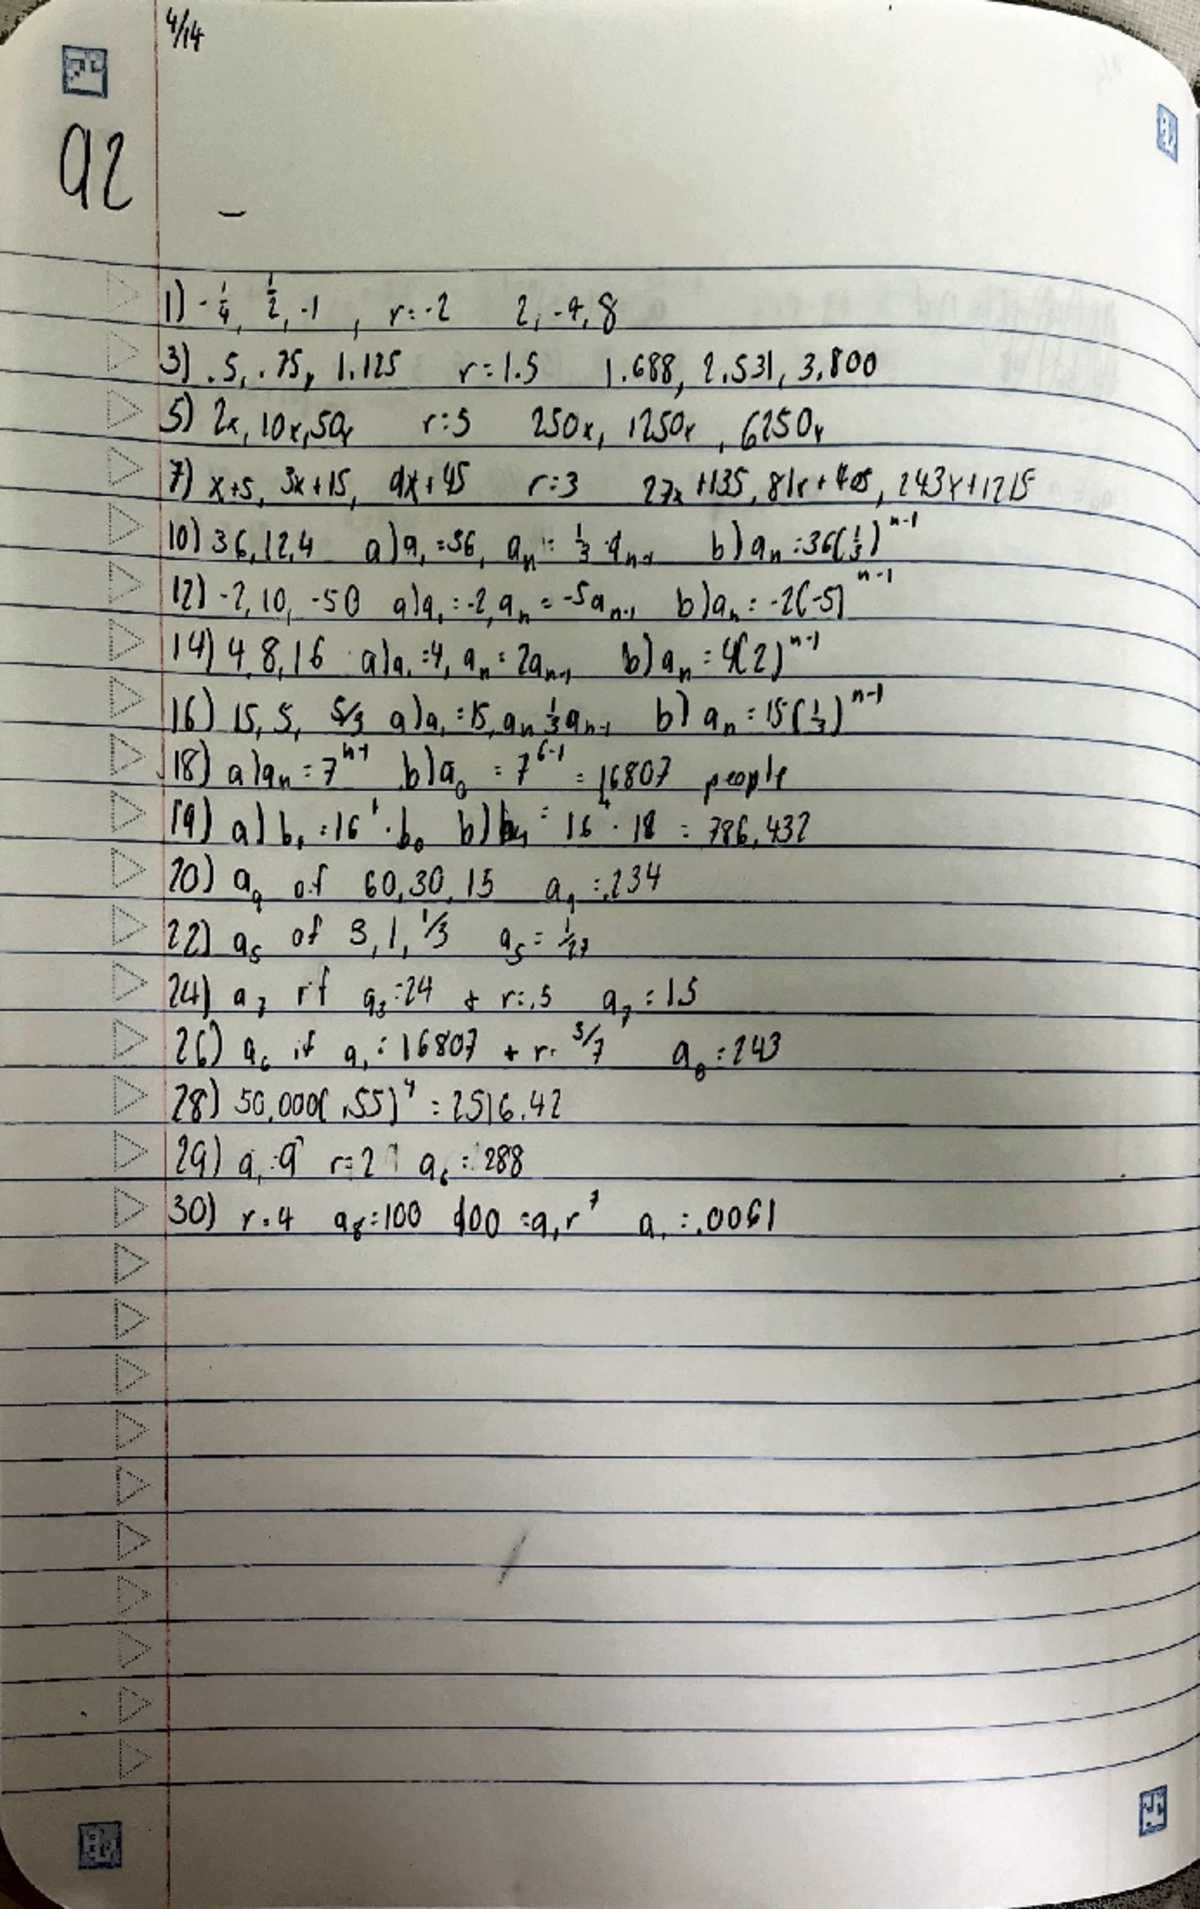 4/14
92
1) -1/4, 1/2, -1, r=-2 2, -4, 8
3) .5, .75, 1.125 r=1.5 1.688, 2.531, 3.800
5) 2x, 10x, 50x r=5 250x, 1250x, 6250x
7) x+5, 3x+15, 9x+45 r=3 27x+135, 81x+405, 243x+1215
10) 36,12,4 a) a₁=36, aₙ = 1/3·aₙ₋₁ b) aₙ=36(1/3)ⁿ⁻¹
12) -2, 10, -50 a) a₁=-2, aₙ=-5aₙ₋₁ b) aₙ=-2(-5)ⁿ⁻¹
14) 4,8,16 a) a₁=4, aₙ=2aₙ₋₁ b) aₙ=4(2)ⁿ⁻¹
16) 15, 5, 5/3 a) a₁=15, aₙ 1/3aₙ₋₁ b) aₙ=15(1/3)ⁿ⁻¹
18) a) aₙ=7ⁿ⁻¹ b) a₆=7⁶⁻¹=16807 people
19) a) b₁=16¹·b₀ b) b₄=16⁴·18=786,432
20) a₉ of 60,30,15 a₉=.234
22) a₅ of 3,1,1/3 a₅=1/27
24) a₇ if a₃=24 + r=.5 a₇=1.5
26) a₆ if a₁=16807 + r=3/7 a₆=243
28) 50,000(.55)⁴=2516.42
29) a₁=9 r=2 a₆=288
30) r=4 a₈=100 100=a₁r⁷ a₁=.0061